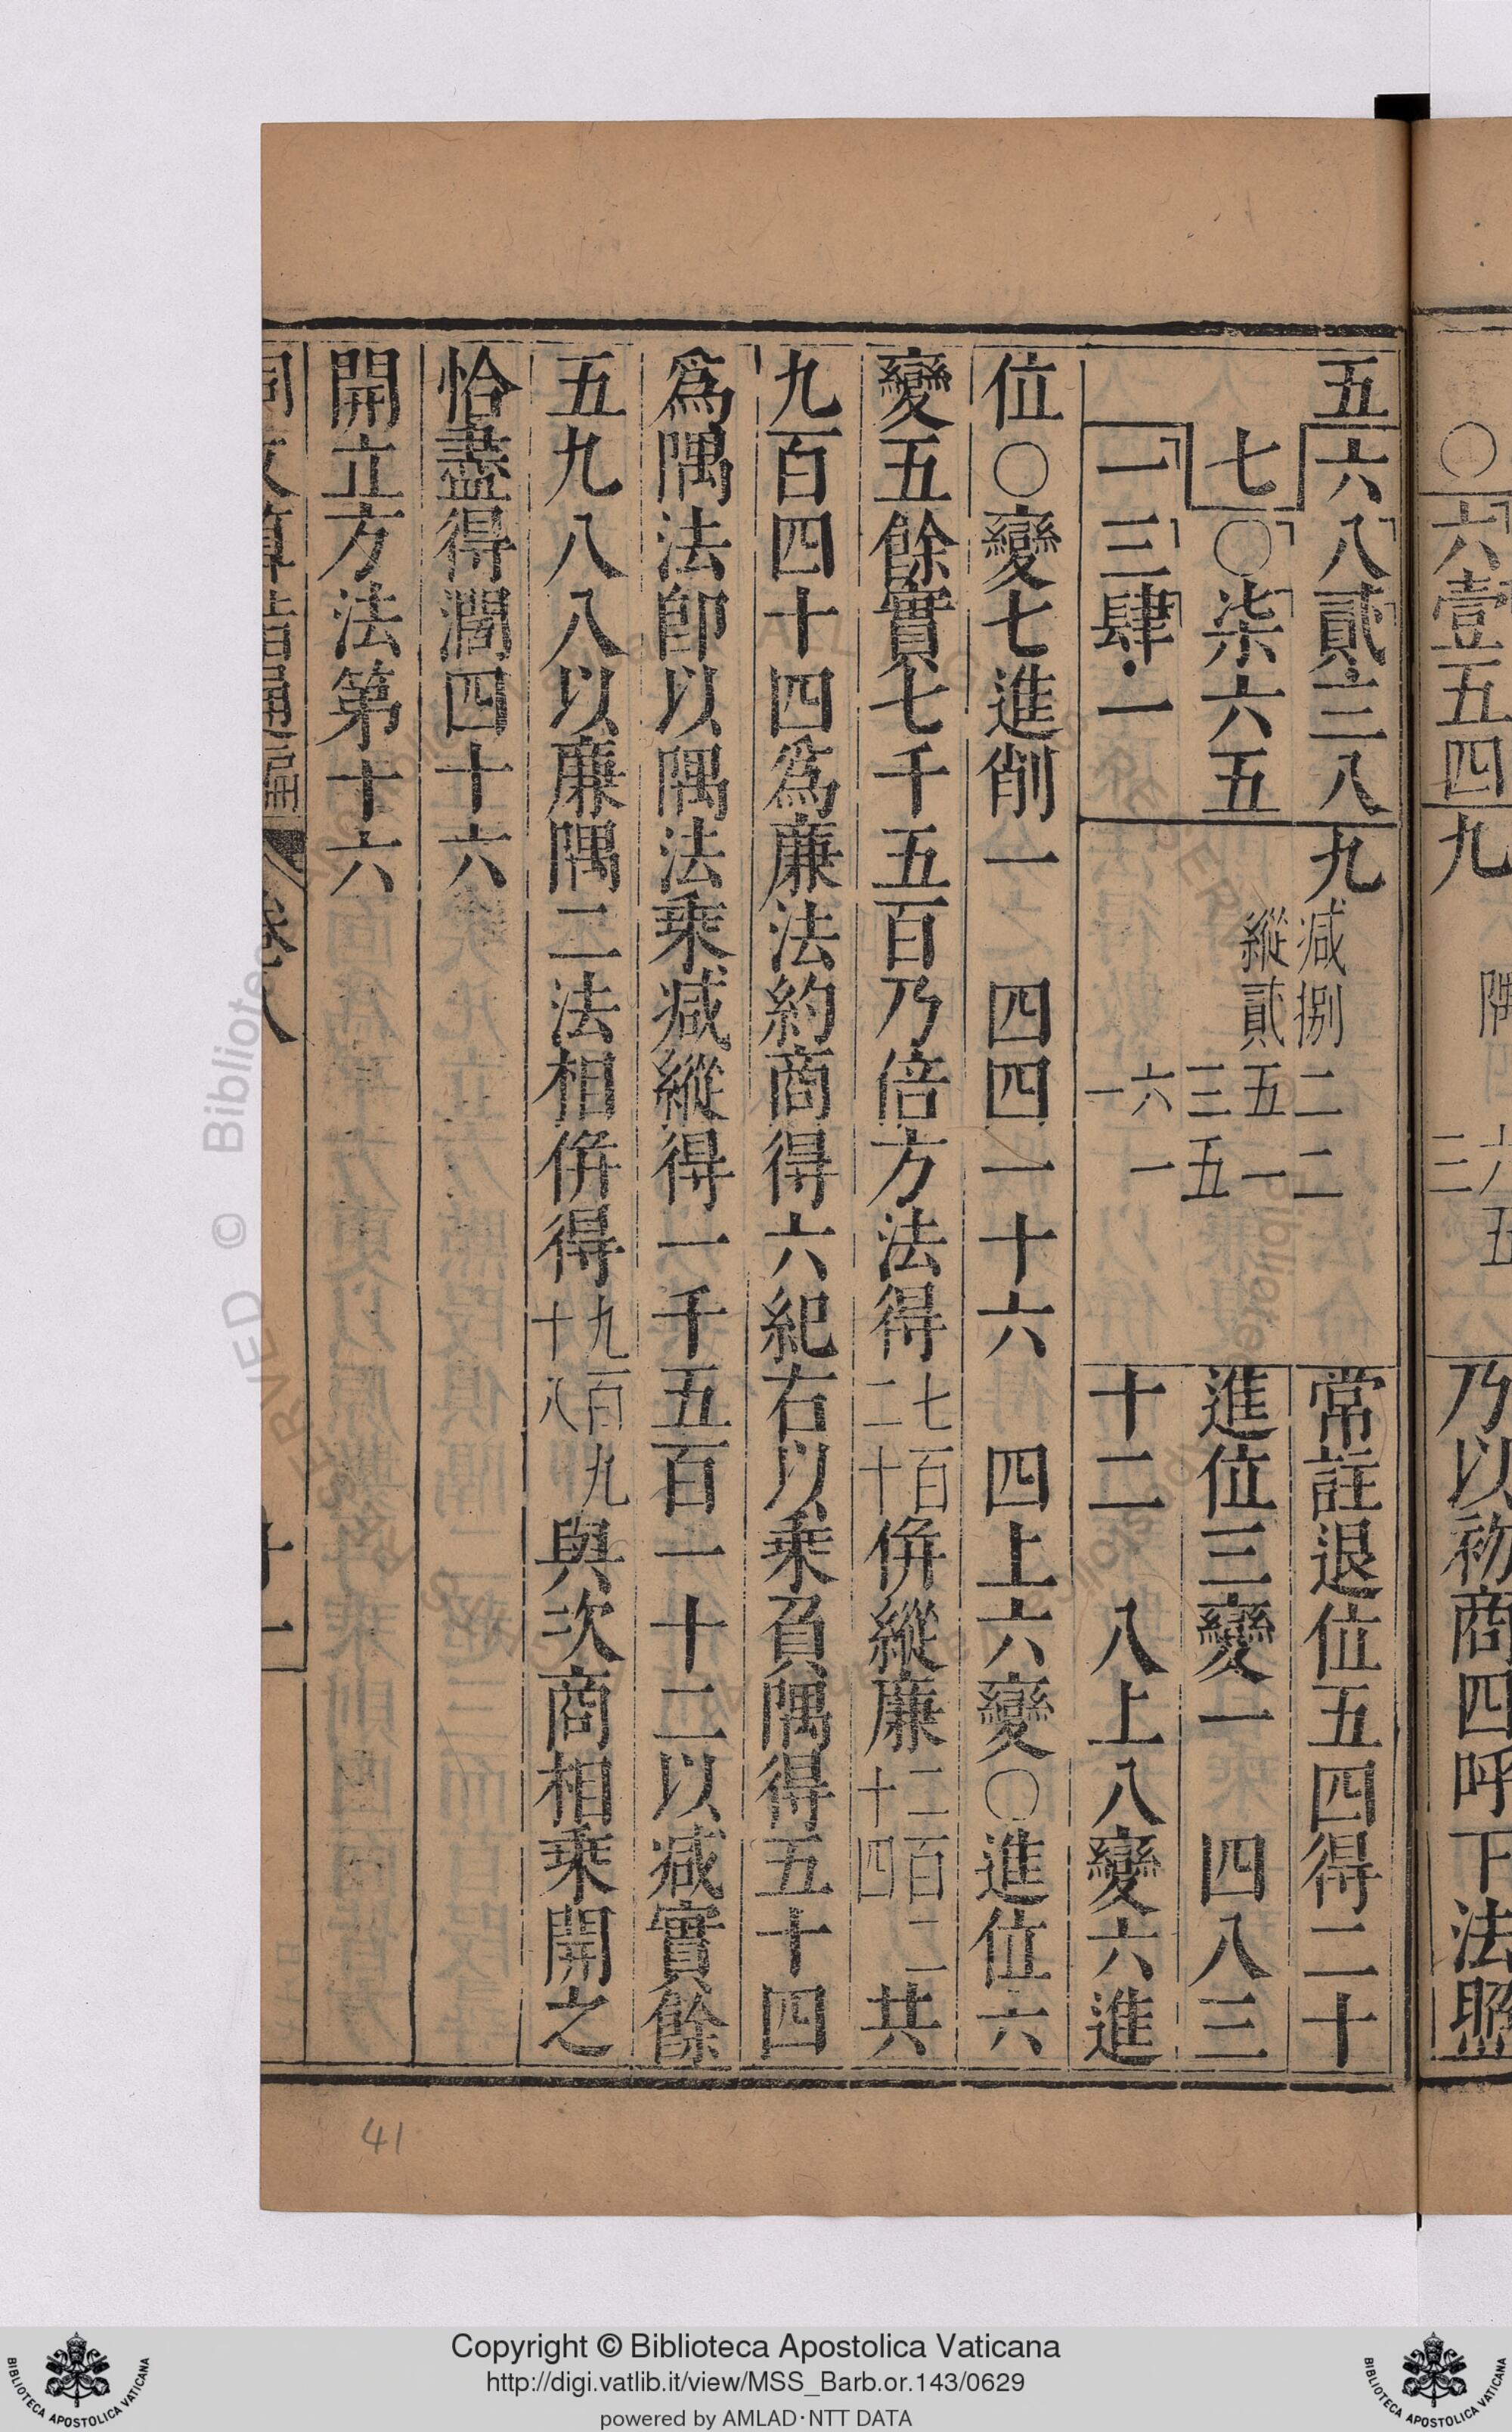 五六八貳三八九減捌二二常註退位五四得二十
七〇柒六五縱貳五一三五進位三變一 四八三
一三肆一六一一十二 八上八變六進
位〇變七進削一 四四一十六 四上六變〇進位六
變五餘實七千五百乃倍方法得七百二十併縱廉二百二十四共
九百四十四爲廉法約商得六紀右以乘負隅得五十四
爲隅法卽以隅法乘減縱得一千五百一十二以減實餘
五九八八以廉隅二法相併得九百九十八與次商相乘開之
恰盡得濶四十六
開立方法第十六
同文算指通編 卷八
〇六壹五四九
乃以初商四呼下法照
41
Copyright © Biblioteca Apostolica Vaticana
http://digi.vatlib.it/view/MSS_Barb.or.143/0629
powered by AMLAD·NTT DATA
BIBLIOTECA APOSTOLICA VATICANA
BIBLIOTECA APOSTOLICA VATICANA